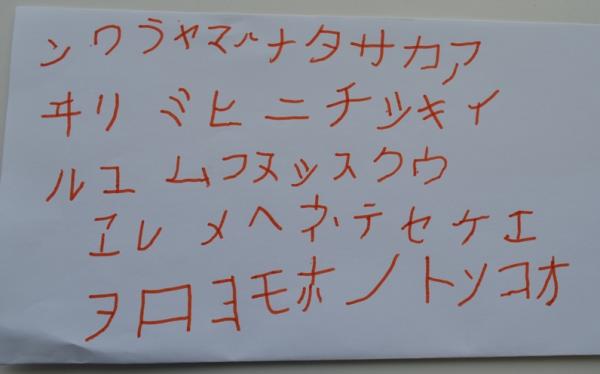 ンワラヤマハナタサカア
ヰリ ミヒニチシキイ
ルユ ムフヌツスクウ
ヱレ メヘネテセケエ
ヲロヨモホノトソコオ